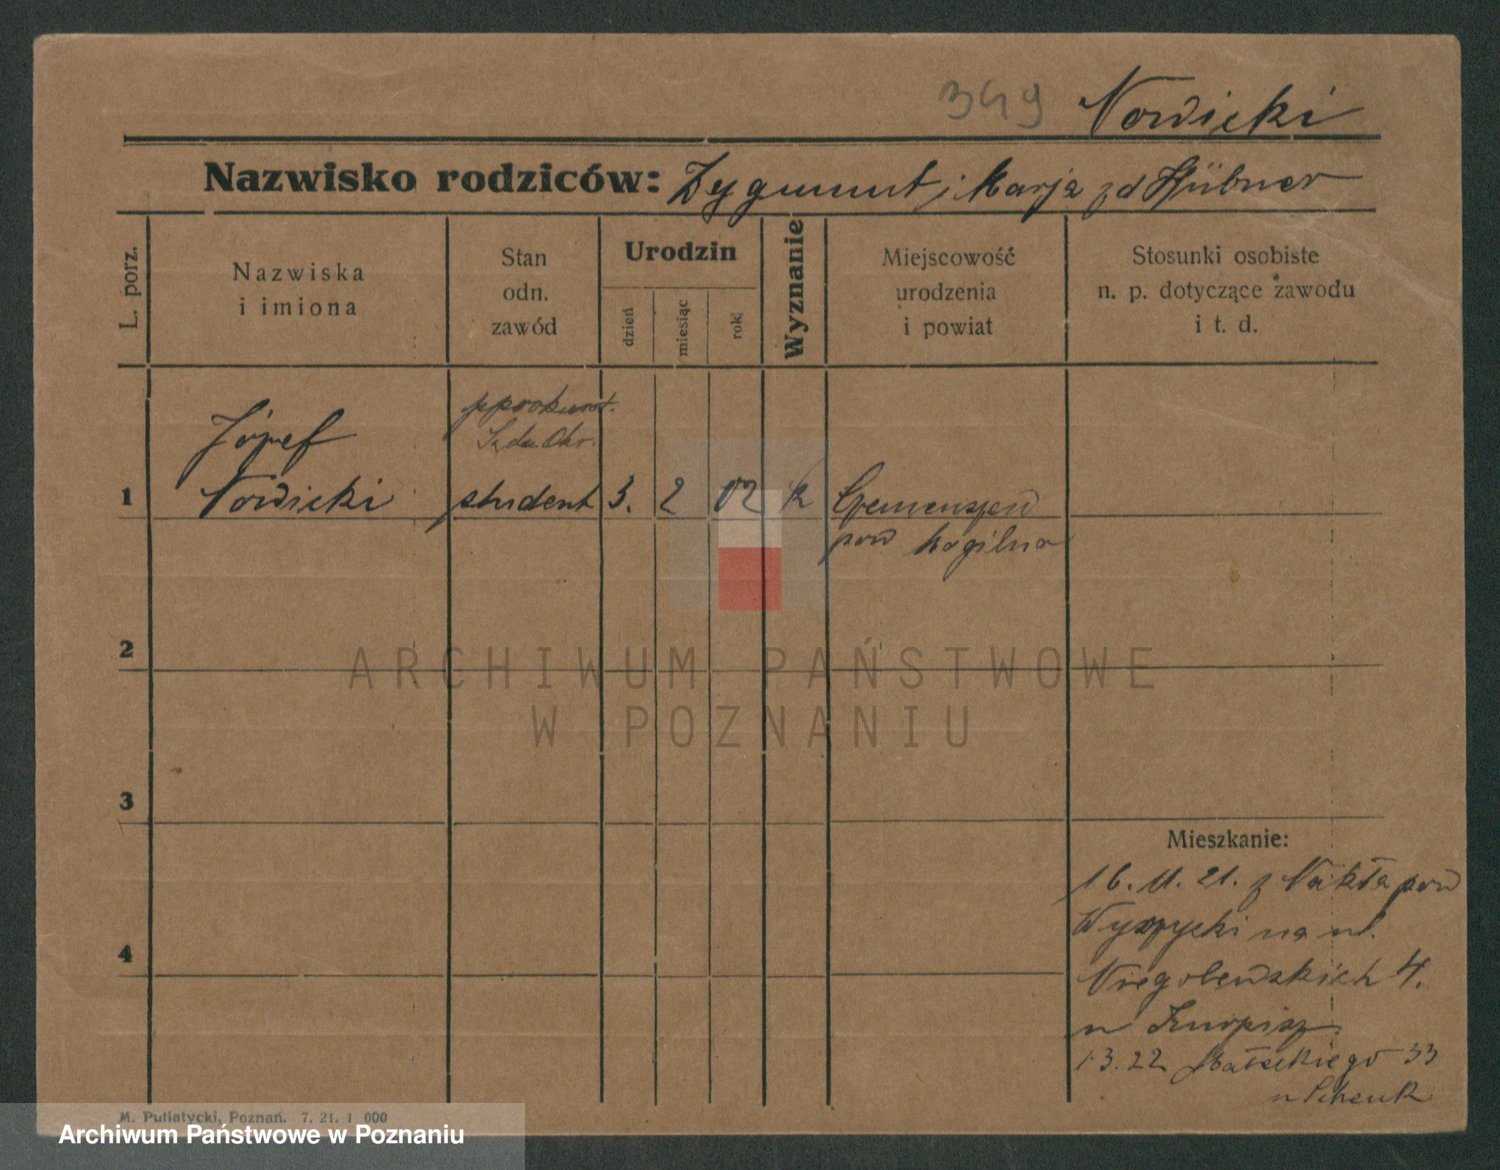 349 Nowicki
Nazwisko rodziców: Zygmunt i Marja z d Hübner
L. porz.
Nazwiska
i imiona
Stan
odn.
zawód
Urodzin
dzień
miesiąc
rok
Wyznanie
Miejscowość
urodzenia
i powiat
Stosunki osobiste
n. p. dotyczące zawodu
i t. d.
1
Józef
Nowicki
pprokurat.
Sądu Okr.
student
3.
2
02
k
pow Mogilno
2
3
4
ARCHIWUM PAŃSTWOWE
W POZNANIU
Mieszkanie:
16. 11. 21. z Nakła pow
Wyrzycki na ul.
Niegolewskich 4.
u
1.3.22 Małeckiego 33
u Schenk
M. Putiatycki, Poznań. 7. 21. 1 000
Archiwum Państwowe w Poznaniu